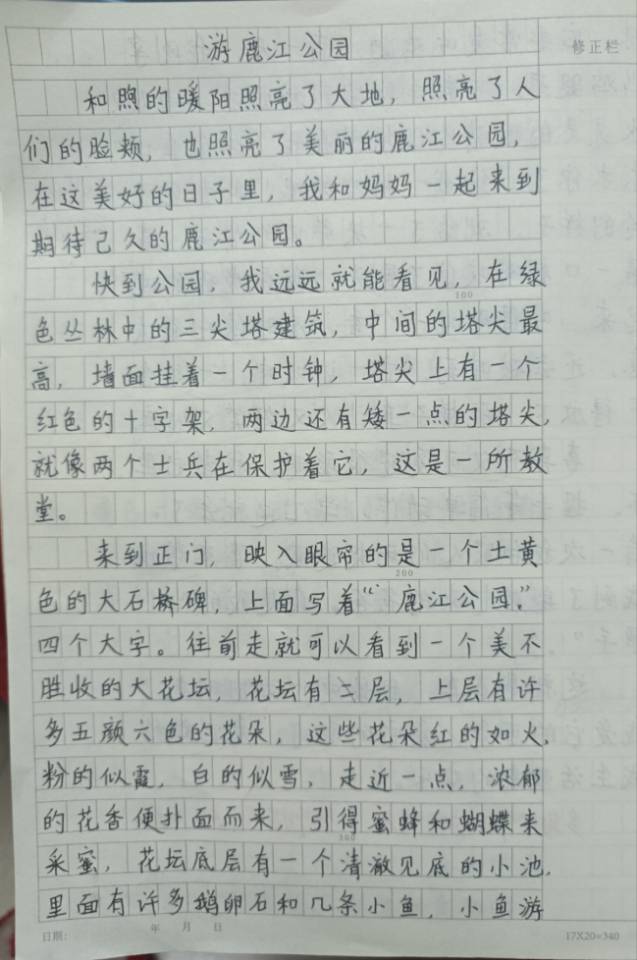 游鹿江公园
修正栏
和煦的暖阳照亮了大地，照亮了人
们的脸颊，也照亮了美丽的鹿江公园，
在这美好的日子里，我和妈妈一起来到
期待已久的鹿江公园。
快到公园，我远远就能看见，在绿
100
色丛林中的三尖塔建筑，中间的塔尖最
高，墙面挂着一个时钟，塔尖上有一个
红色的十字架，两边还有矮一点的塔尖，
就像两个士兵在保护着它，这是一所教
堂。
来到正门，映入眼帘的是一个土黄
200
色的大石桥碑，上面写着“鹿江公园”
四个大字。往前走就可以看到一个美不
胜收的大花坛，花坛有二层，上层有许
多五颜六色的花朵，这些花朵红的如火，
粉的似霞，白的似雪，走近一点，浓郁
的花香便扑面而来，引得蜜蜂和蝴蝶来
300
采蜜，花坛底层有一个清澈见底的小池，
里面有许多鹅卵石和几条小鱼，小鱼游
日期： 年 月 日 17X20=340